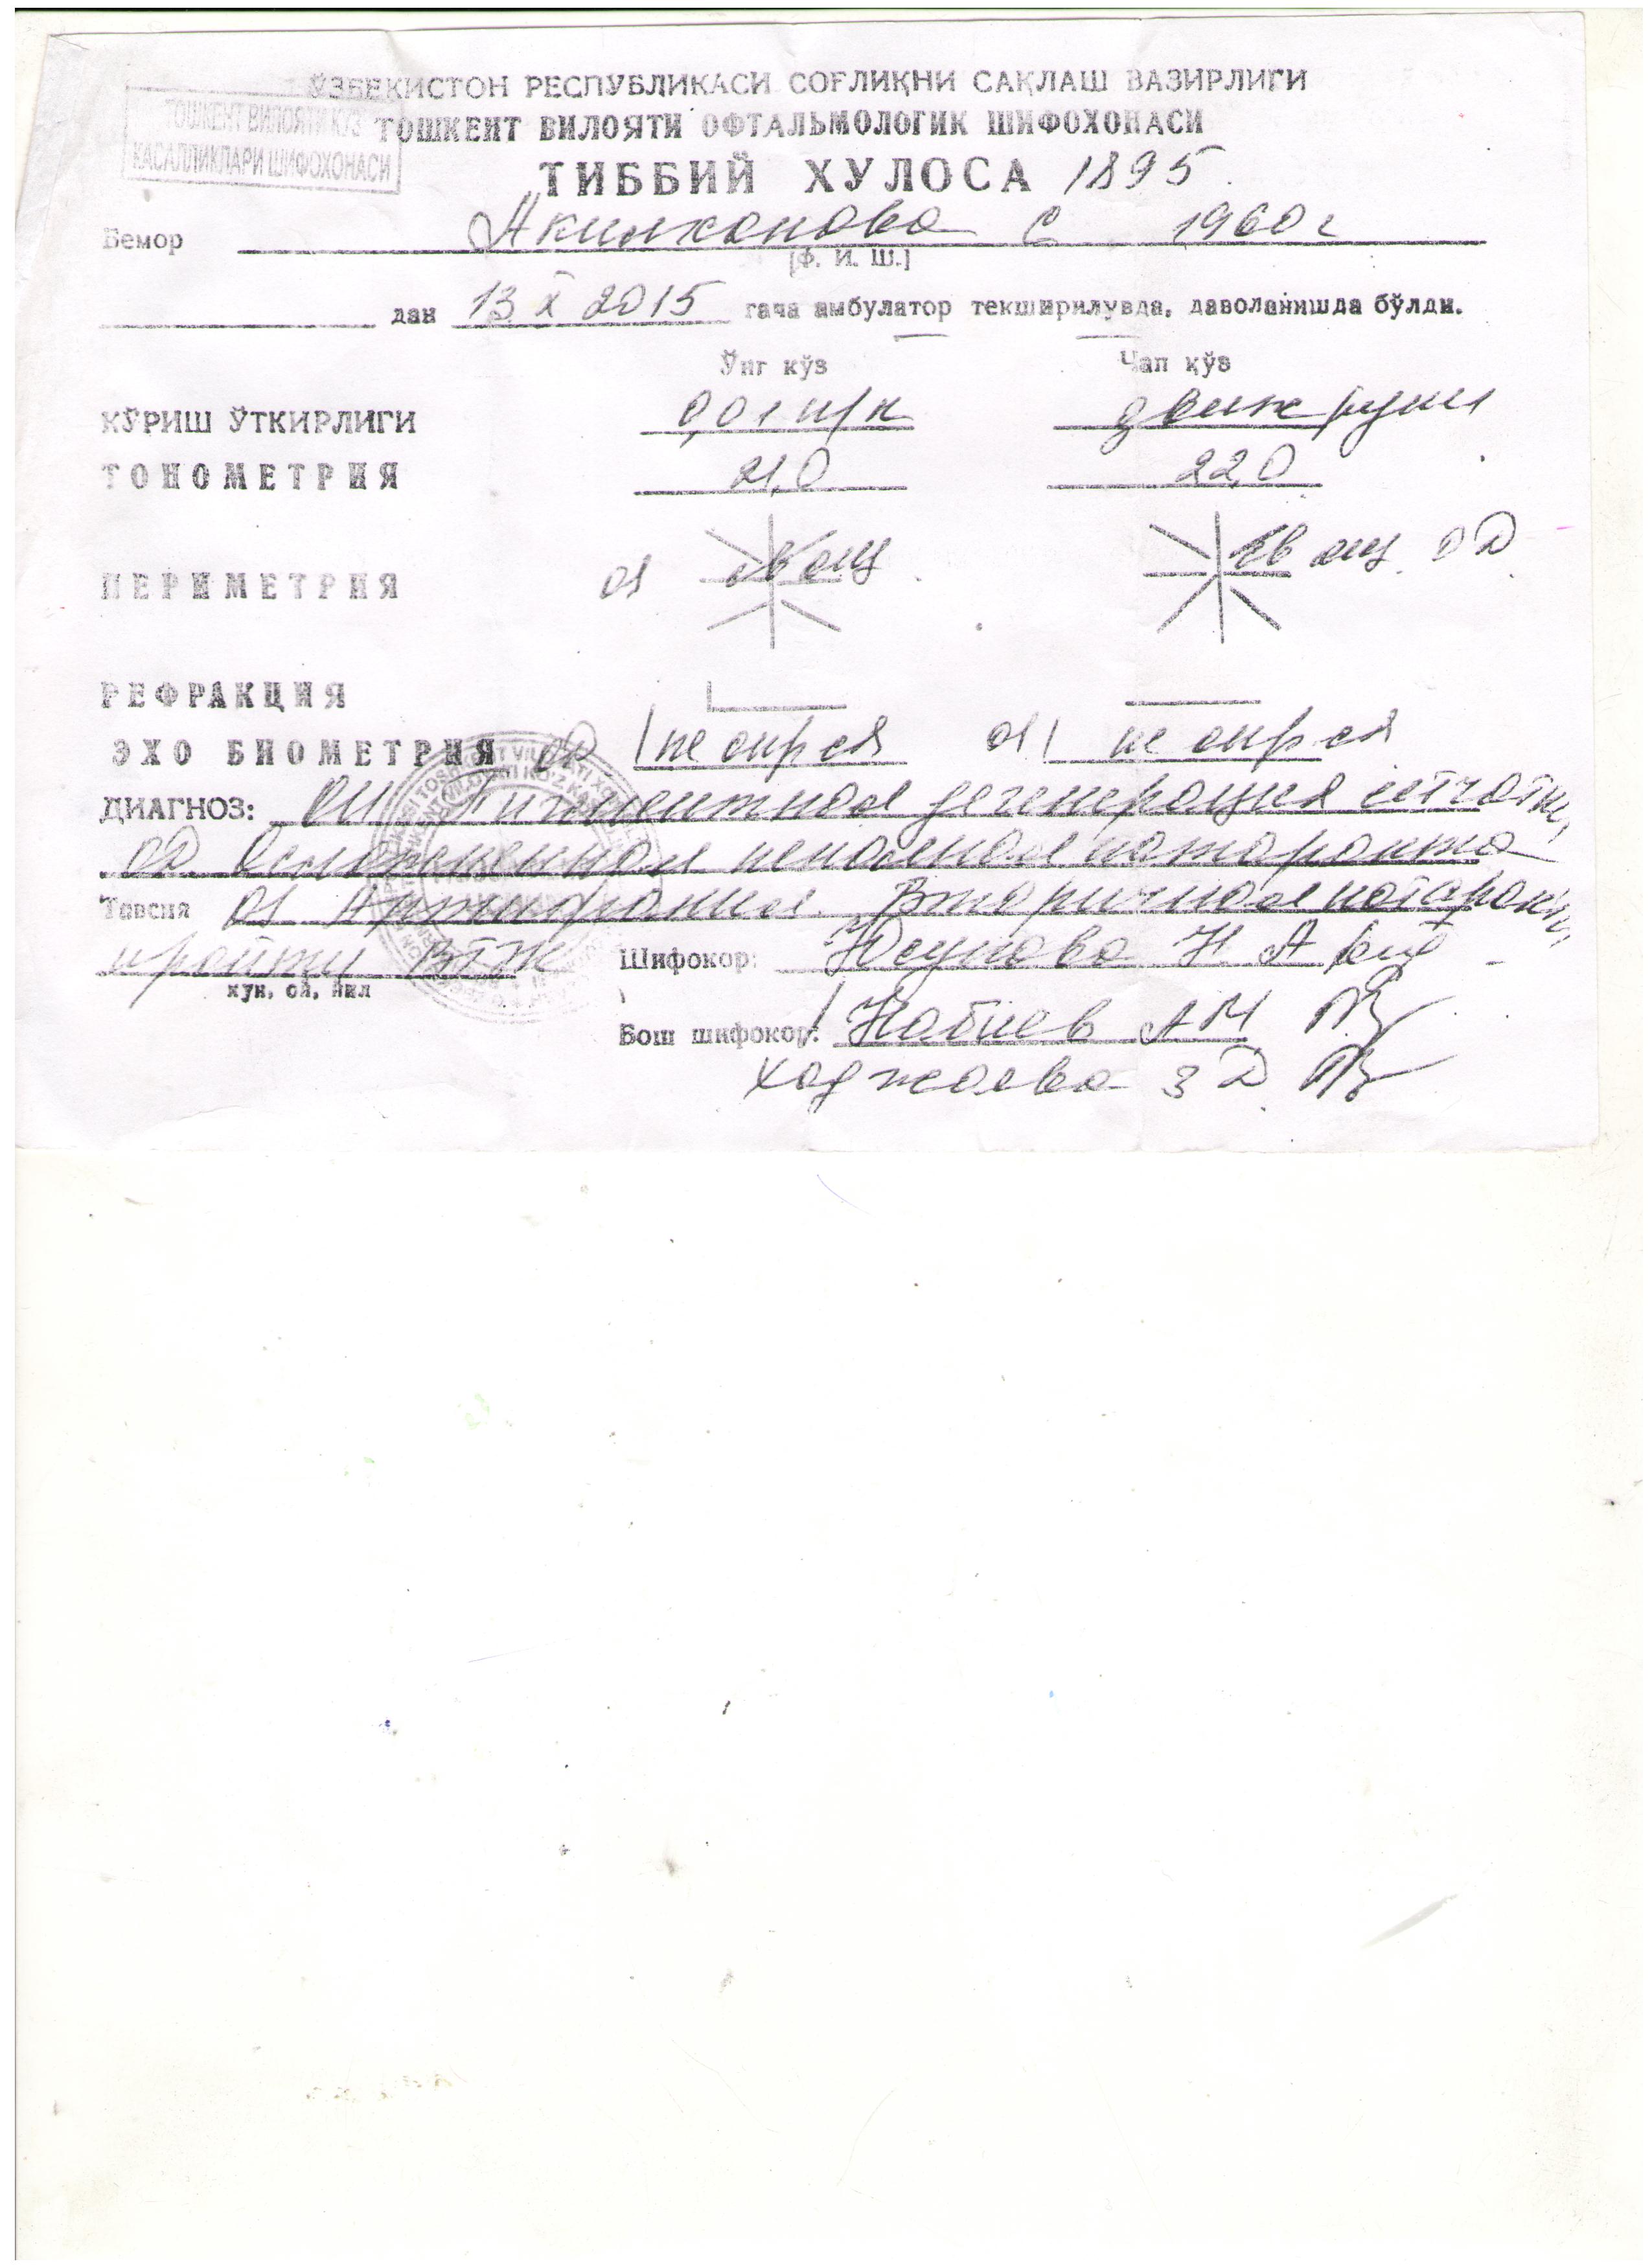 ЎЗБЕКИСТОН РЕСПУБЛИКАСИ СОҒЛИҚНИ САҚЛАШ ВАЗИРЛИГИ
ТОШКЕНТ ВИЛОЯТИ КЎЗ
КАСАЛЛИКЛАРИ ШИФОХОНАСИ
ТОШКЕНТ ВИЛОЯТИ ОФТАЛЬМОЛОГИК ШИФОХОНАСИ
ТИББИЙ ХУЛОСА 1895
Бемор Акилханова С 1960 г
[Ф. И. Ш.]
дан 13 X 2015 гача амбулатор текширилувда, даволанишда бўлди.
Ўнг кўз Чап кўз
КЎРИШ ЎТКИРЛИГИ 0,01 н/к движ руки
ТОНОМЕТРИЯ 21,0 22,0
ПЕРИМЕТРИЯ OS OD
РЕФРАКЦИЯ
ЭХО БИОМЕТРИЯ OD не опр ся OS не опр ся
ДИАГНОЗ: OU Пигментная дегенерация сетчатки,
OD Осложненная неполная катаракта
Тавсия OS Артифакия. Вторичная катаракта,
пройти ВТЭК Шифокор: Юсупова Н А
кун, ой, йил
Бош шифокор: Набиев АМ
Ходжаева З Д